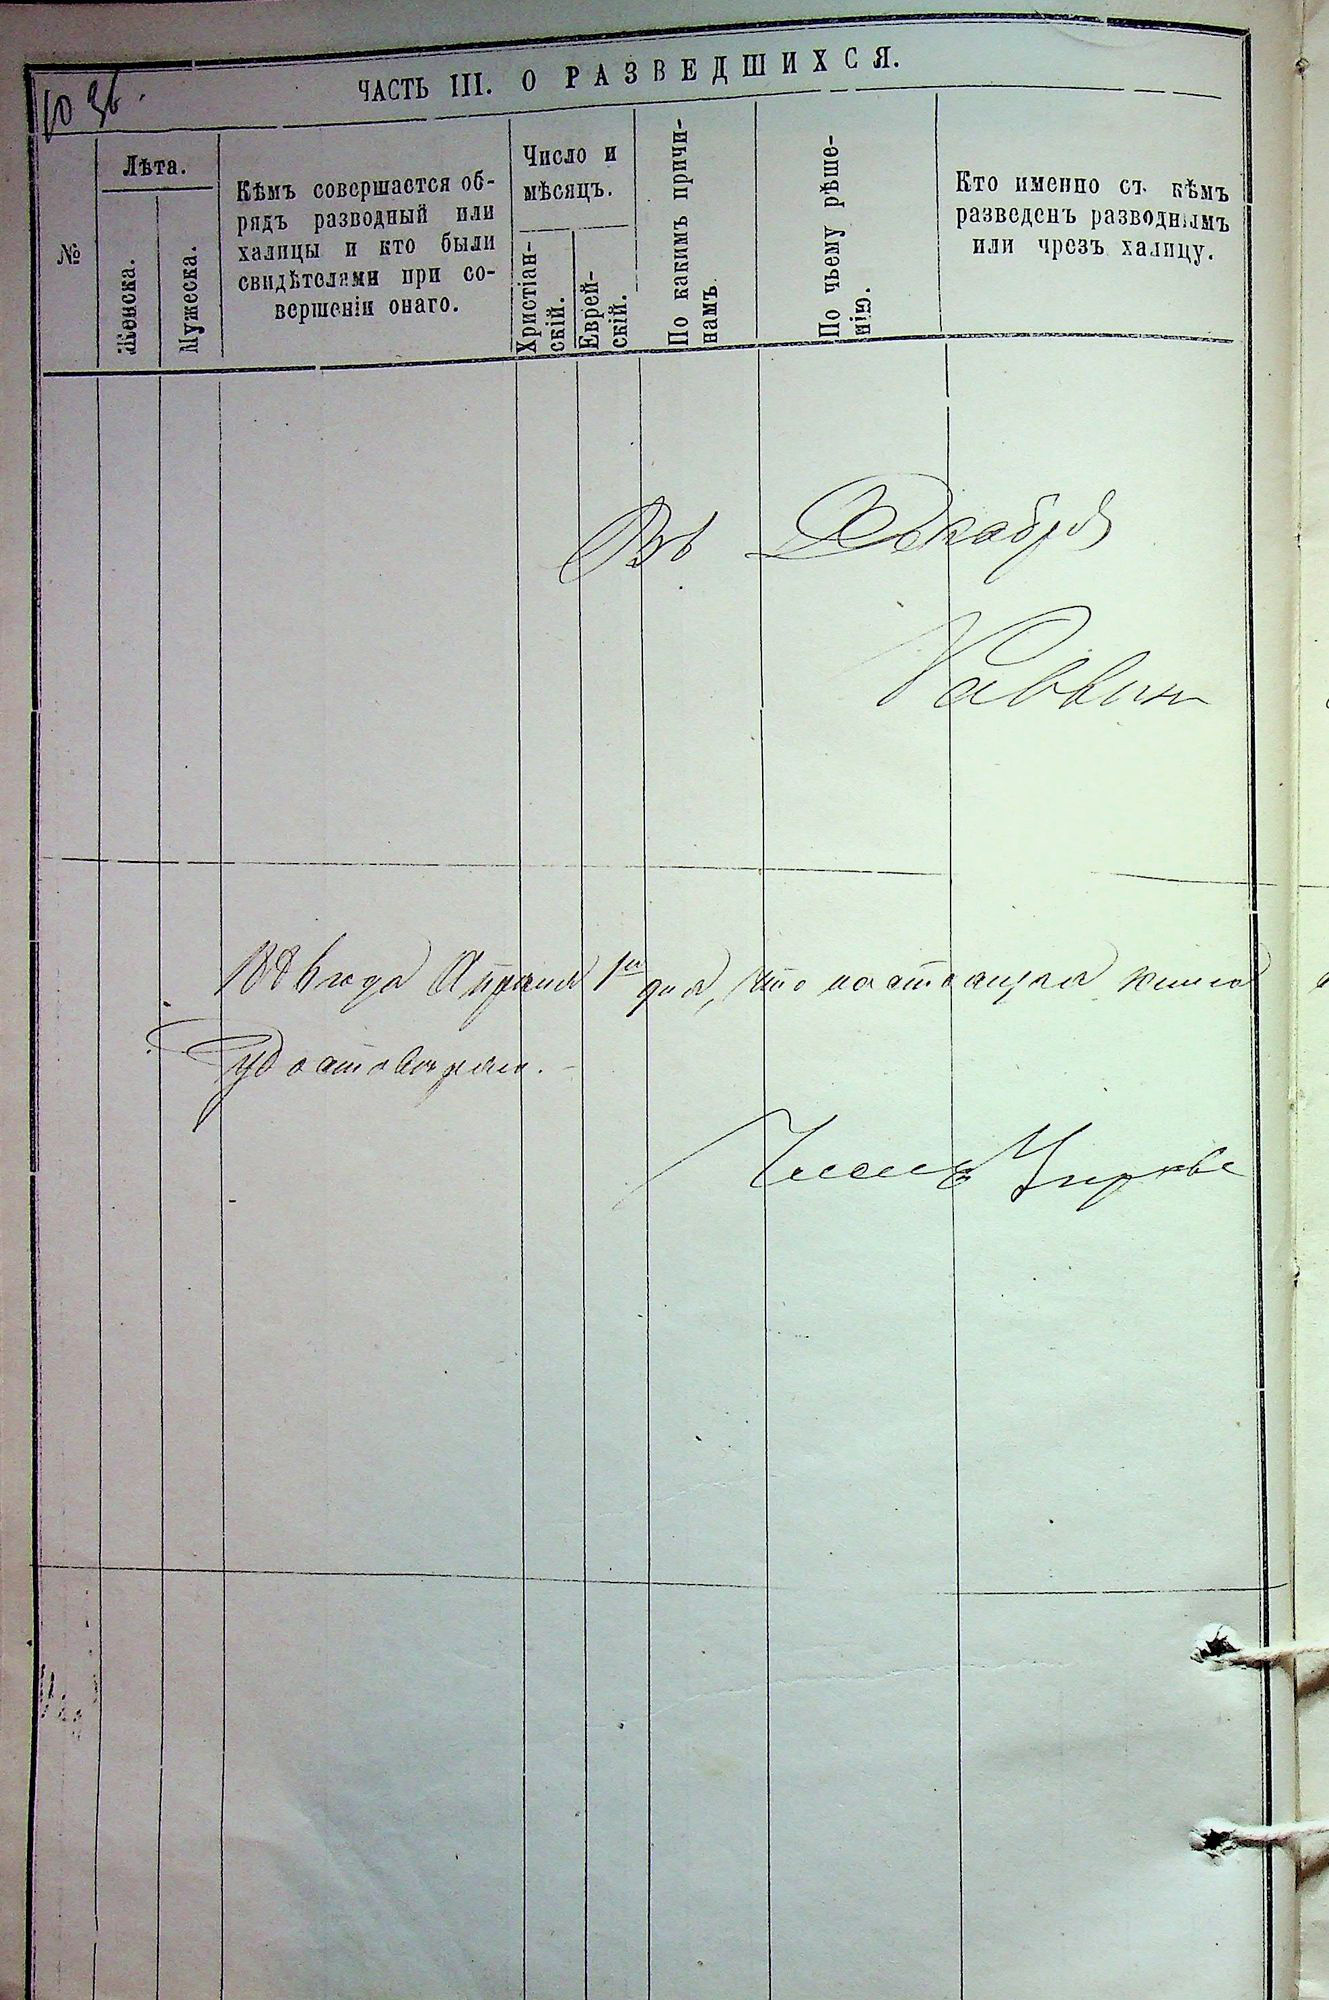 ЧАСТЬ III. О РАЗВЕДШИХСЯ.
№
Лѣта.
Женска.
Мужеска.
Кѣмъ совершается об-
рядъ разводный или
халицы и кто были
свидѣтелями при со-
вершеніи онаго.
Число и
мѣсяцъ.
Христіан-
скій.
Еврей-
скій.
По какимъ причи-
намъ.
По чьему рѣше-
нію.
Кто именно съ кѣмъ
разведенъ разводнымъ
или чрезъ халицу.
Въ Декабрѣ
Раввинъ
года Апрѣля 1го дня, что настоящая книга
удостовѣряю.
Членъ Управы